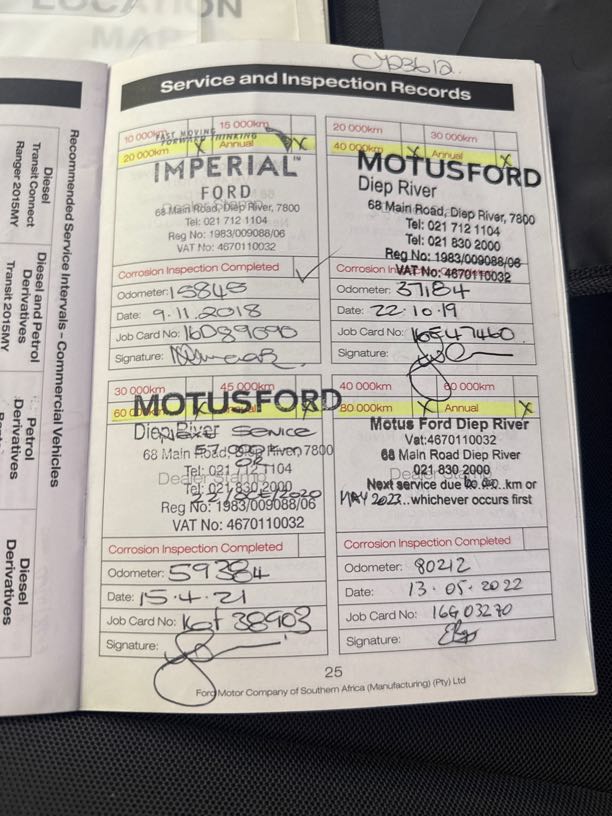 LOCATION
MA
CY23612.
Service and Inspection Records
10 000km
15 000km
20 000km X Annual X
FAST MOVING
FORWARD THINKING
IMPERIAL™
FORD
Dealer Stamp
68 Main Road, Diep River, 7800
Tel: 021 712 1104
Reg No: 1983/009088/06
VAT No: 4670110032
Corrosion Inspection Completed ✓
Odometer: 15845
Date: 9.11.2018
Job Card No: 16D89090
Signature:
20 000km
30 000km
40 000km Annual X
MOTUSFORD
Diep River
68 Main Road, Diep River, 7800
Tel: 021 712 1104
Tel: 021 830 2000
Reg No: 1983/009088/06
VAT No: 4670110032
Corrosion Inspection Completed
Odometer: 37184
Date: 22.10.19
Job Card No: 16E47460
Signature:
30 000km
45 000km
60 000km X Annual X
MOTUSFORD
Diep River
Next Service
68 Main Road, Diep River, 7800
OR
Tel: 021 712 1104
Dealer Stamp
Tel: 021 830 2000
Reg No: 1983/009088/06
VAT No: 4670110032
Corrosion Inspection Completed
Odometer: 59384
Date: 15.4.21
Job Card No: 16F 38903
Signature:
40 000km
60 000km
80 000km X Annual X
Motus Ford Diep River
Vat:4670110032
68 Main Road Diep River
021 830 2000
Dealer Stamp
Next service due km or
MAY 2023 whichever occurs first
Corrosion Inspection Completed
Odometer: 80212
Date: 13.05.2022
Job Card No: 16G03270
Signature:
25
Ford Motor Company of Southern Africa (Manufacturing) (Pty) Ltd
Recommended Service Intervals - Commercial Vehicles
Diesel
Transit Connect
Ranger 2015MY
Diesel and Petrol
Derivatives
Transit 2015MY
Petrol
Derivatives
Diesel
Derivatives